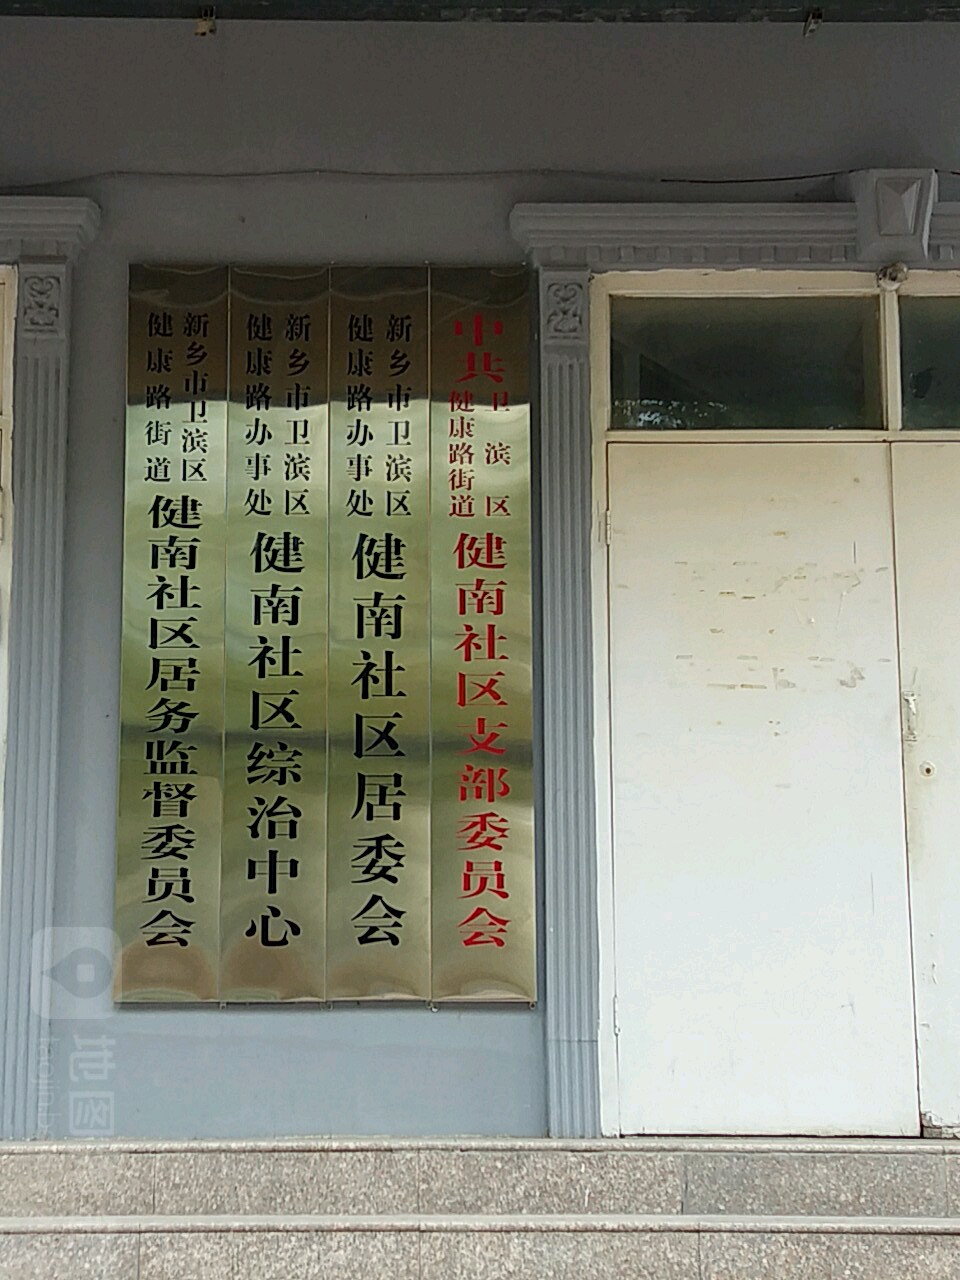 中共卫滨区健康路街道健南社区支部委员会
新乡市卫滨区健康路办事处健南社区居委会
新乡市卫滨区健康路办事处健南社区综治中心
新乡市卫滨区健康路街道健南社区居务监督委员会